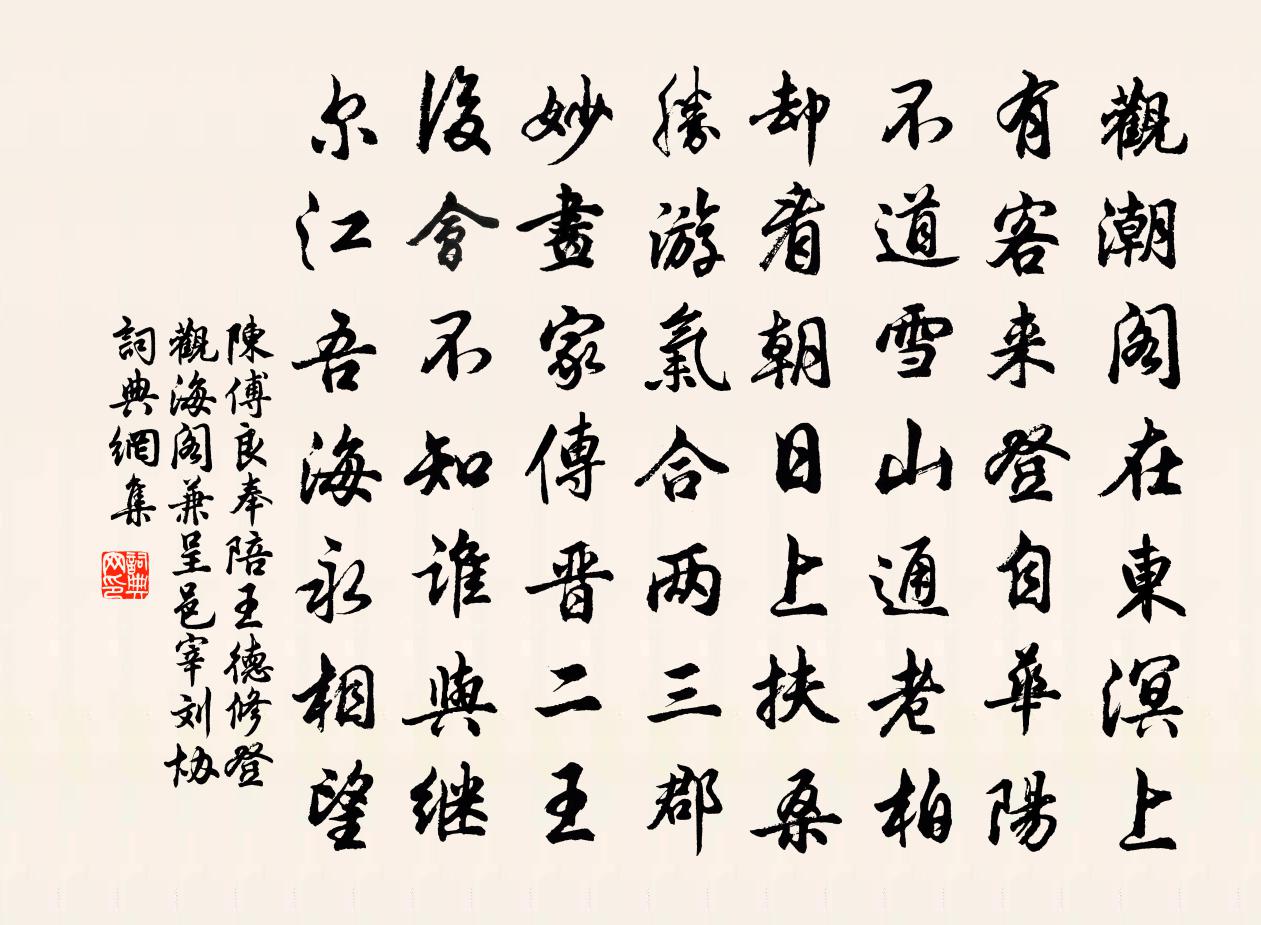 觀潮阁在東溟上
有客来登自華陽
不道雪山通老柏
却看朝日上扶桑
勝游氣合两三郡
妙畫家傳晋二王
後會不知誰與继
尔江吾海永相望
陳傅良奉陪王德修登
觀海阁兼呈邑宰刘协
詞典網集
詞典
网印